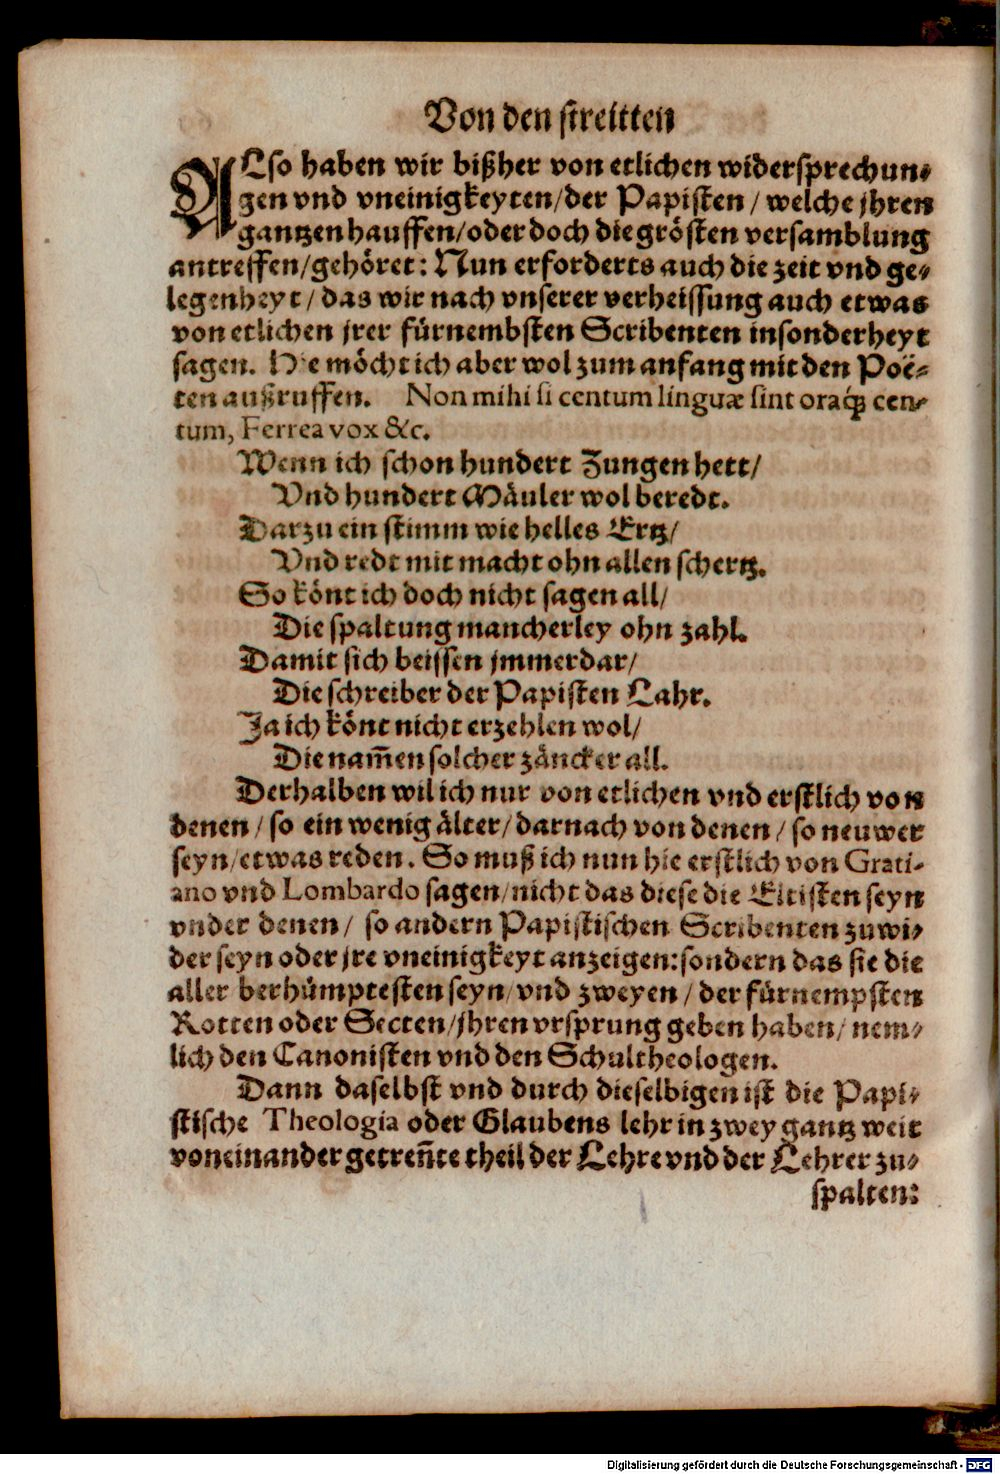 Von den streitten
ALso haben wir bißher von etlichen widersprechun-
gen vnd vneinigkeyten/der Papisten/ welche jhren
gantzen hauffen/oder doch die grösten versamblung
antreffen/gehöret: Nun erforderts auch die zeit vnd ge-
legenheyt/ das wir nach vnserer verheissung auch etwas
von etlichen jrer fürnembsten Scribenten insonderheyt
sagen. Hie möcht ich aber wol zum anfang mit den Poë-
ten außruffen. Non mihi si centum linguæ sint oraq́; cen-
tum, Ferrea vox &c.
Wenn ich schon hundert Zungen hett/
Vnd hundert Mäuler wol beredt.
Darzu ein stimm wie helles Ertz/
Vnd redt mit macht ohn allen schertz.
So könt ich doch nicht sagen all/
Die spaltung mancherley ohn zahl.
Damit sich beissen jmmerdar/
Die schreiber der Papisten Lahr.
Ja ich könt nicht erzehlen wol/
Die nam̃en solcher zäncker all.
Derhalben wil ich nur von etlichen vnd erstlich von
denen/ so ein wenig älter/ darnach von denen/ so neuwer
seyn/etwas reden. So muß ich nun hie erstlich von Grati-
ano vnd Lombardo sagen/nicht das diese die Eltisten seyn
vnder denen/ so andern Papistischen Scribenten zuwi-
der seyn oder jre vneinigkeyt anzeigen: sondern das sie die
aller berhümptesten seyn/ vnd zweyen/ der fürnempsten
Rotten oder Secten/jhren vrsprung geben haben/ nem-
lich den Canonisten vnd den Schultheologen.
Dann daselbst vnd durch dieselbigen ist die Papi-
stische Theologia oder Glaubens lehr in zwey gantz weit
voneinander getreñte theil der Lehre vnd der Lehrer zu-
spalten:
Digitalisierung gefördert durch die Deutsche Forschungsgemeinschaft - DFG